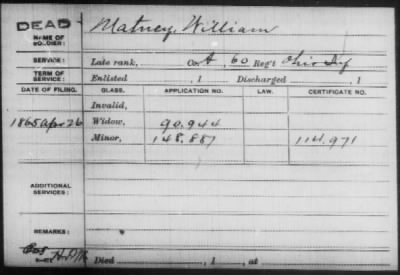 DEAD
NAME OF SOLDIER: Matney, William
SERVICE: Late rank, Co. A, 60 Reg't Ohio Inf
TERM OF SERVICE: Enlisted , 1 Discharged , 1
DATE OF FILING. CLASS. APPLICATION NO. LAW. CERTIFICATE NO.
Invalid,
1865 Apr 26 Widow, 90.944
Minor, 148.887 114.971
ADDITIONAL SERVICES:
REMARKS:
Died , 1 , at